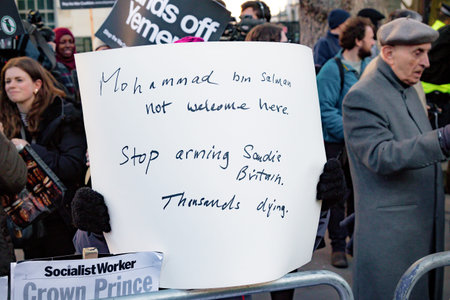 nds off
Yemen
Mohammad bin Salman
not welcome here.
Stop arming Saudis
Britain.
Thousands dying.
Socialist Worker
Crown Prince